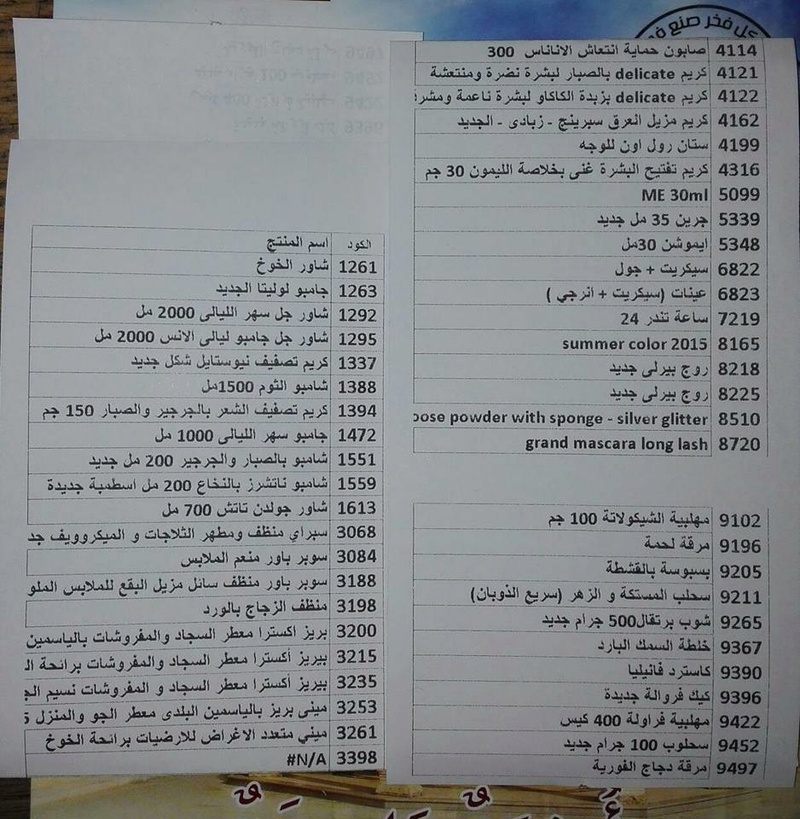 كل فخر صنع
4114 صابون حماية انتعاش الاناناس 300
4121 كريم delicate بالصبار لبشرة نضرة ومنتعشة
4122 كريم delicate بزبدة الكاكاو لبشرة ناعمة
4162 كريم مزيل العرق سبرينج - زبادى - الجديد
4199 ستان رول اون للوجه
4316 كريم تفتيح البشرة غنى بخلاصة الليمون 30 جم
5099 ME 30ml
5339 جرين 35 مل جديد
5348 ايموشن 30مل
6822 سيكريت + جول
6823 عينات (سيكريت + انرجي )
7219 ساعة تندر 24
8165 summer color 2015
8218 روج بيرلى جديد
8225 روج بيرلى جديد
8510 powder with sponge - silver glitter
8720 grand mascara long lash
9102 مهلبية الشيكولاتة 100 جم
9196 مرقة لحمة
9205 بسبوسة بالقشطة
9211 سحلب المستكة و الزهر (سريع الذوبان)
9265 شوب برتقال500 جرام جديد
9367 خلطة السمك البارد
9390 كاسترد فانيليا
9396 كيك فروالة جديدة
9422 مهلبية فراولة 400 كيس
9452 سحلوب 100 جرام جديد
9497 مرقة دجاج الفورية
الكود اسم المنتج
1261 شاور الخوخ
1263 جامبو لوليتا الجديد
1292 شاور جل سهر الليالى 2000 مل
1295 شاور جل جامبو ليالى الانس 2000 مل
1337 كريم تصفيف نيوستايل شكل جديد
1388 شامبو الثوم 1500مل
1394 كريم تصفيف الشعر بالجرجير والصبار 150 جم
1472 جامبو سهر الليالى 1000 مل
1551 شامبو بالصبار والجرجير 200 مل جديد
1559 شامبو ناتشرز بالنخاع 200 مل اسطمبة جديدة
1613 شاور جولدن تاتش 700 مل
3068 سبراي منظف ومطهر الثلاجات و الميكروويف جد
3084 سوبر باور منعم الملابس
3188 سوبر باور منظف سائل مزيل البقع للملابس الملو
3198 منظف الزجاج بالورد
3200 بريز أكسترا معطر السجاد والمفروشات بالياسمين
3215 بيريز أكسترا معطر السجاد والمفروشات برائحة
3235 بيريز أكسترا معطر السجاد و المفروشات نسيم
3253 مينى بريز بالياسمين البلدى معطر الجو والمنزل
3261 ميني متعدد الاغراض للارضيات برائحة الخوخ
3398 #N/A